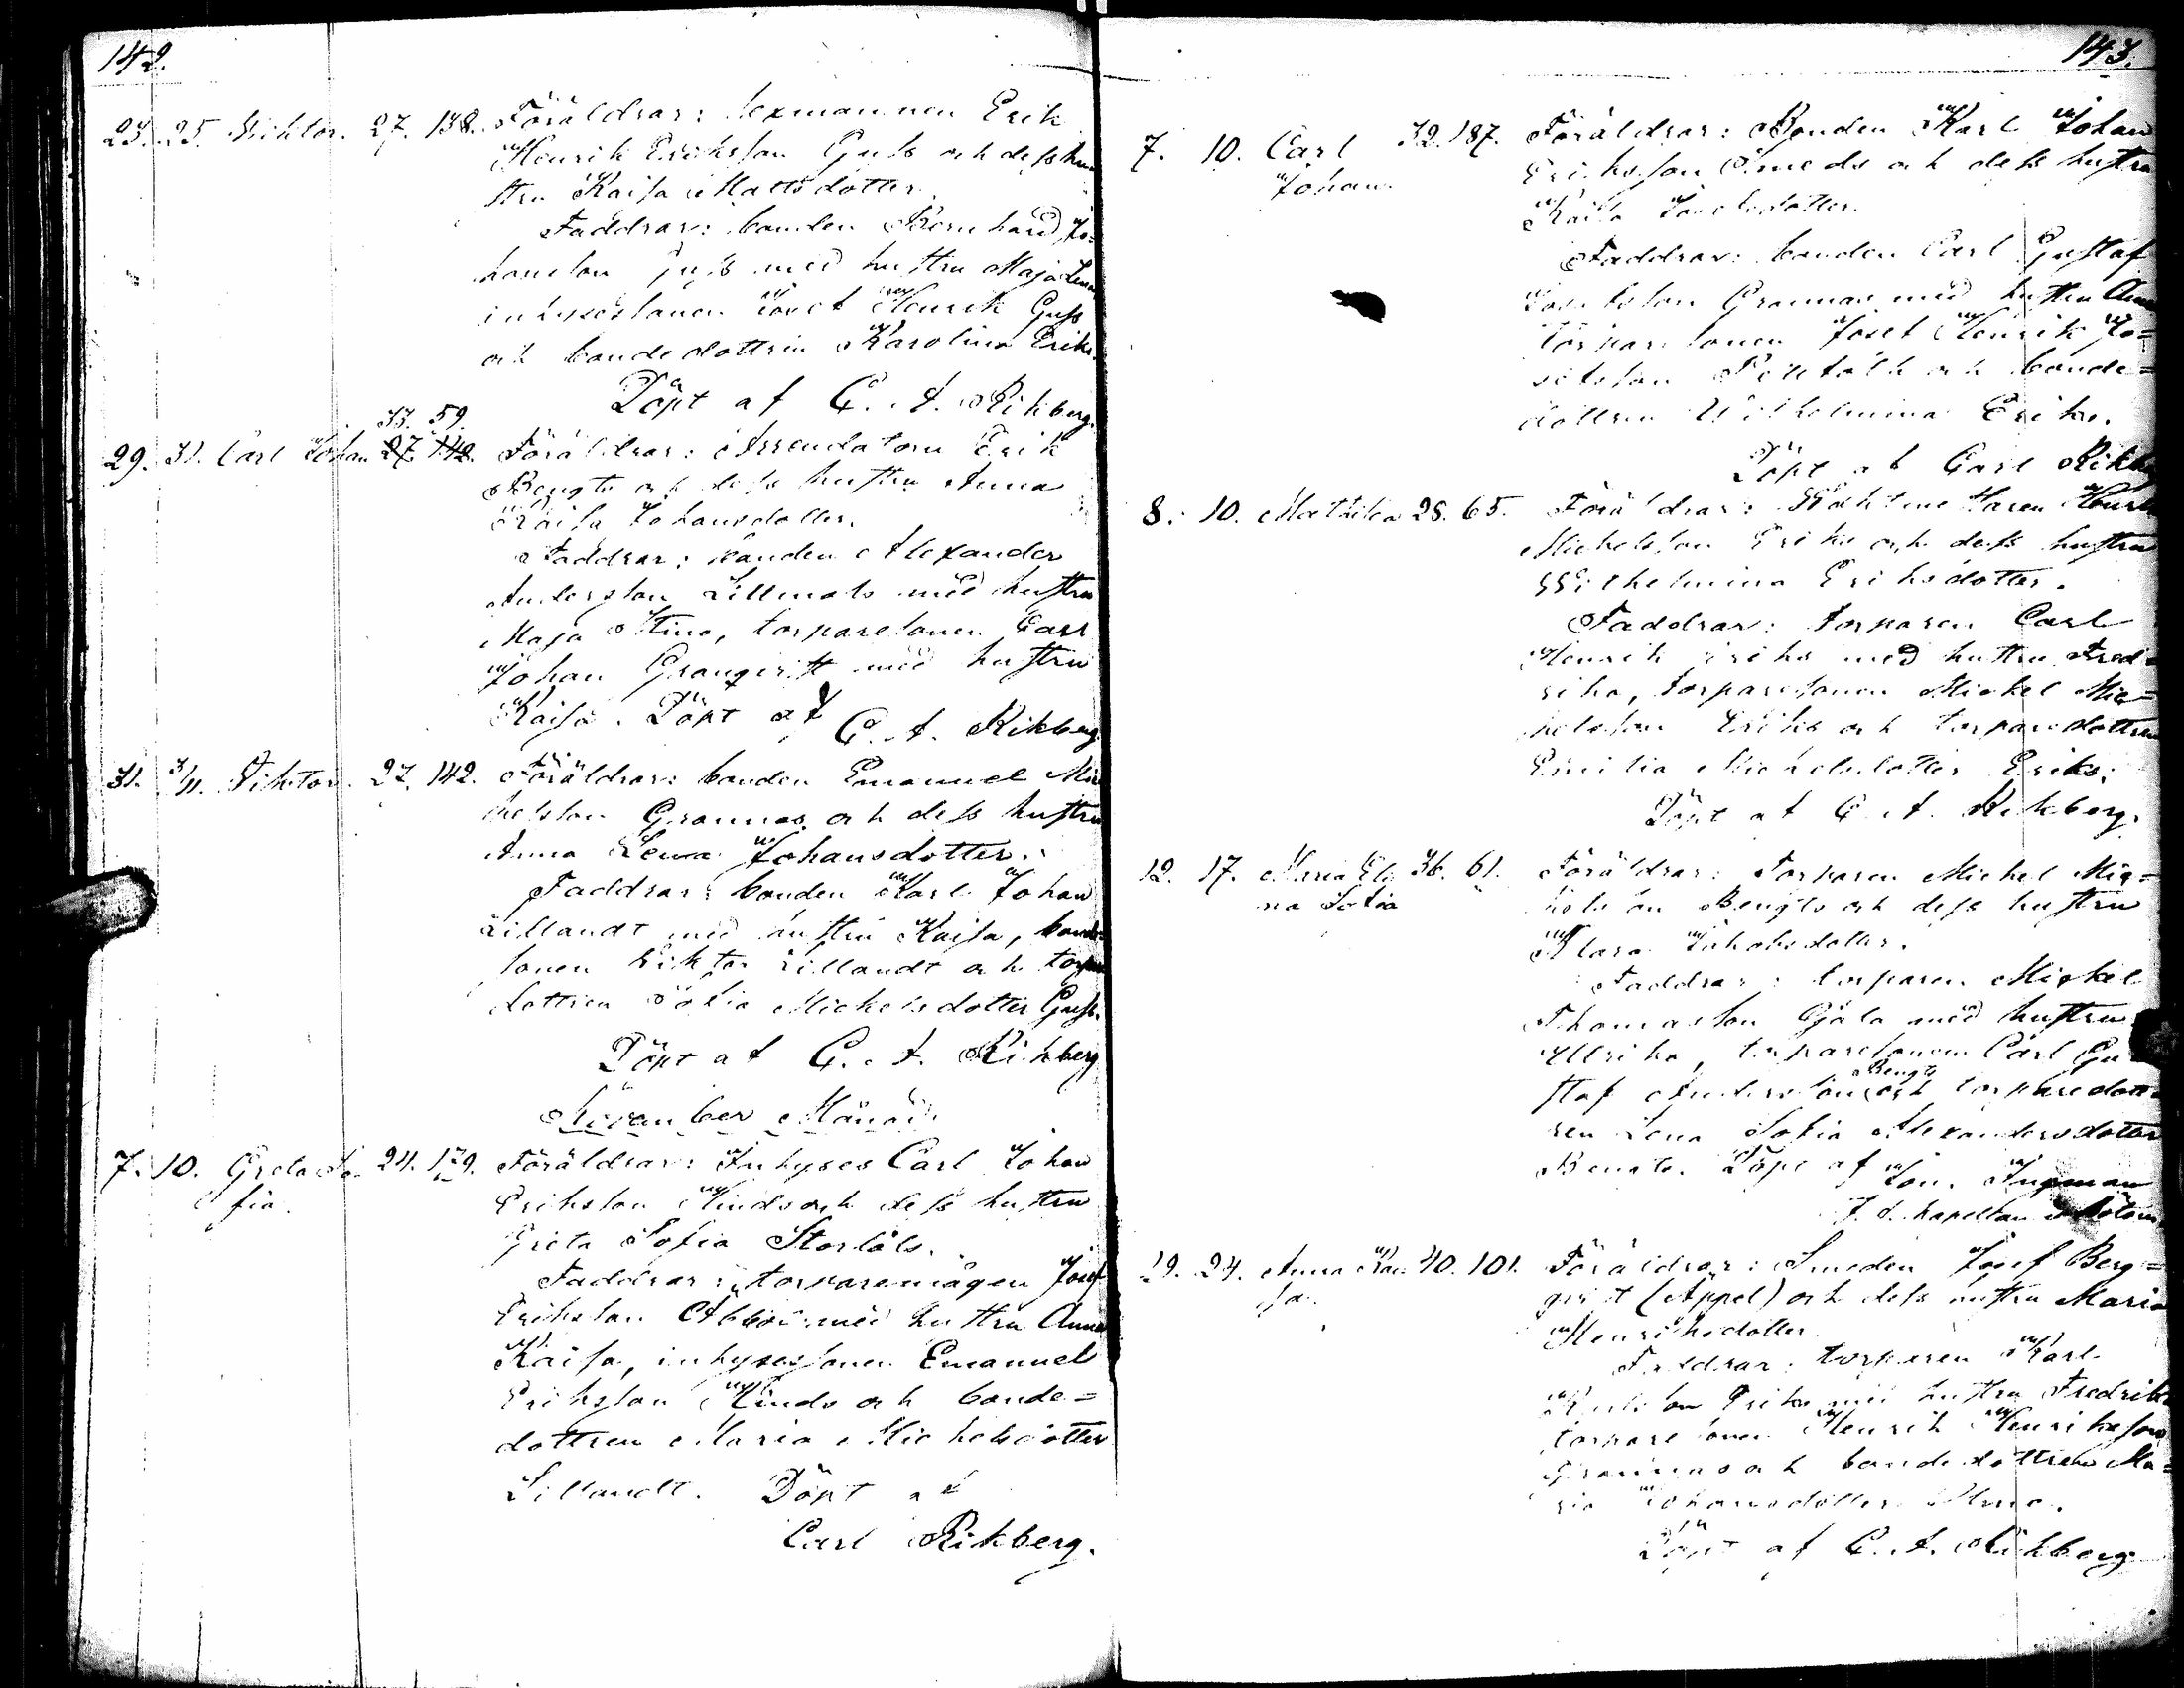 142.
23. 25. Viktor. 27. 138. Föräldrar: Sexmannen Erik
Henrik Eriksson Guss och dess hu
stru Kaisa Mattsdotter.
Faddrar: bonden Bernhard Jo=
hansson Guss med hustru Maja Lena
inhysessonen Josef Henrik Guss
och bondedottren Karolina Eriks.
Döpt af C. A. Rikberg.
33. 59.
29. 31. Carl Johan 27. 142. Föräldrar: Arrendatorn Erik
Bengts och dess hustru Anna
Kaisa Johansdotter.
Faddrar: bonden Alexander
Andersson Lillmats med hustru
Maja Stina, torparesonen Carl
Johan Granqvist med hustru
Kaisa. Döpt af C. A. Rikberg.
31. 3/11. Viktor. 27. 142. Föräldrar: bonden Emanuel Mic
kelsson Grannas och dess hustru
Anna Lena Johansdotter.
Faddrar: bonden Karl Johan
Lillandt med hustru Kaisa, bonde
sonen Viktor Lillandt och torpare
dottren Sofia Mickelsdotter Guss.
Döpt af C. A. Rikberg
November Månad.
7. 10. Greta So- 24. 179. Föräldrar: Inhyses Carl Johan
fia. Eriksson Kinds och dess hustru
Greta Sofia Storlåls.
Faddrar: torparemågen Josef
Eriksson Abbor med hustru Anna
Kaisa, inhysessonen Emanuel
Eriksson Kinds och bonde=
dottren Maria Mickelsdotter
Lillandt. Döpt af
Carl Rikberg.
143.
7. 10. Carl 32. 187. Föräldrar: Bonden Karl Johan
Johan. Eriksson Smeds och dess hustru
Kaisa Josefsdotter.
Faddrar: bonden Carl Gustaf
Josefsson Grannas med hustru Anna
torparesonen Josef Henrik Jo=
sefsson och bonde=
dottren Wilhelmina Eriks.
Döpt af Carl Rikb
8. 10. Mathilda 28. 65. Föräldrar: Henrik
Mickelsson Eriks och dess hustru
Wilhelmina Eriksdotter.
Faddrar: torparen Carl
Henrik Eriks med hustru Fred=
rika, torparesonen Mickel Mic=
kelsson Eriks och torparedottren
Emilia Mickelsdotter Eriks.
Döpt af C. A. Rikberg.
12. 17. Maria Eli- 36. 61. Föräldrar: Torparen Mickel Mic=
na Sofia kelsson Bengts och dess hustru
Klara Jakobsdotter.
Faddrar: torparen Mickel
Thomasson Gjälo med hustru
Ullrika, torparesonen Carl Gu=
Bengts
staf Andersson och torparedott=
ren Lena Sofia Alexandersdotter
Bengts. Döpt af Jon. Ingman
19. 24. Anna Kai- 40. 101. Föräldrar: Smeden Josef Berg=
sa. qvist (Appel) och dess hustru Maria
Henriksdotter.
Faddrar: torparen Karl
Eriks med hustru Fredrika
torparesonen Henrik Henriksson
Grannas och bondedottren Ma=
ria Johansdotter
Döpt af C. A. Rikberg